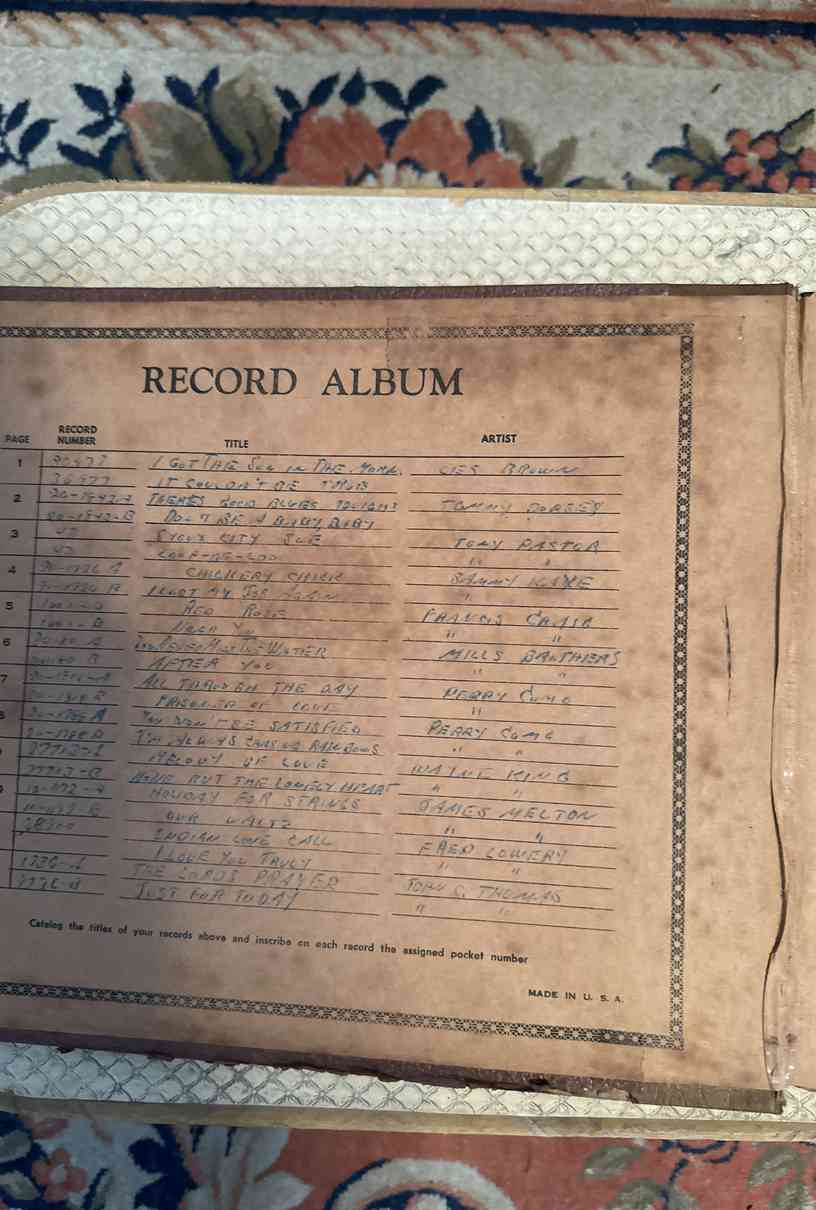 RECORD ALBUM
PAGE RECORD NUMBER TITLE ARTIST
1 36977 I GOT THE SUN IN THE MORN. LES BROWN
36977 IT COULDN'T BE TRUE
2 20-1842-A THERE'S GOOD BLUES TONIGHT TOMMY DORSEY
20-1842-B DON'T BE A BABY, BABY
3 SIOUX CITY SUE TONY PASTOR
" "
4 CHICKERY CHICK SAMMY KAYE
I LOST MY JOB AGAIN "
5 RED ROSE FRANCIS CRAIG
NEAR YOU " "
6 MILLS BROTHERS
AFTER YOU " "
7 ALL THROUGH THE DAY PERRY COMO
PRISONER OF LOVE "
8 YOU WON'T BE SATISFIED PERRY COMO
I'M ALWAYS CHASING RAINBOWS " "
9 27713-A MELODY OF LOVE WAYNE KING
NONE BUT THE LONELY HEART " "
HOLIDAY FOR STRINGS JAMES MELTON
OUR WALTZ " "
INDIAN LOVE CALL FRED LOWERY
I LOVE YOU TRULY " "
THE LORDS PRAYER JOHN C. THOMAS
JUST FOR TODAY " "
Catalog the titles of your records above and inscribe on each record the assigned pocket number
MADE IN U. S. A.